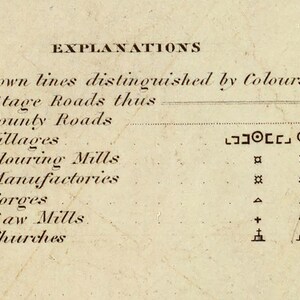 EXPLANATIONS
own lines distinguished by Colour
tage Roads thus
ounty Roads
illages
louring Mills
anufactories
orges
aw Mills
hurches